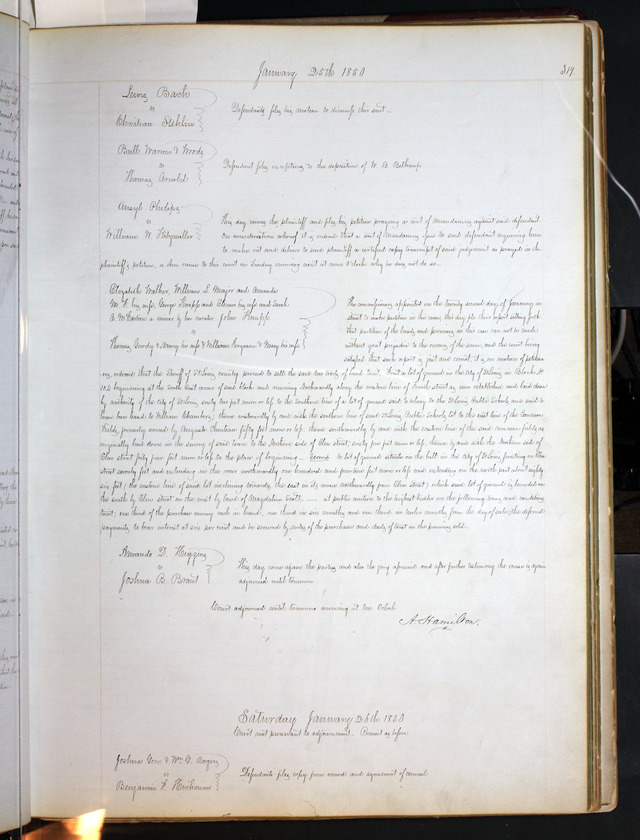 January 25th 1850
319
Lewis Bach
vs
Christian Stehlin
Defendants files his motion to dismiss this suit
Belt, Warren & Woods
vs
Thomas Arnold
Defendant files exceptions to the deposition of W. B.
Phillips
vs
William W.
This day comes the plaintiff and files his petition praying a writ of mandamus against said defendant
On consideration whereof it is ordered that a writ of Mandamus issue to said defendant requiring him
to make out and deliver to said plaintiff a certified copy transcript of said judgement as prayed in the
plaintiff's petition, or show cause to this court on Monday morning next at nine o'clock why he does not do so.
Elizabeth Walker, William L. Major and Amanda
M. F. his wife, George Knapp and his wife and Sarah
a minor by her curator John Knapp
vs
Thomas Grundy & his wife & William Ferguson & Mary his wife
The commissioners appointed on the twenty second day of January in
stant to make partition in this case, this day file their report setting forth
that partition of the lands and premises in this case can not be made
without great prejudice to the owners of the same, and the court being
satisfied that such report is just and correct, it is
ordered that the Sheriff of St Louis county proceed to sell the said two tracts of land First A lot of ground in the City of St Louis in Block
beginning at the South East corner of said block and running Northwardly along the western line of Fourth street as now established and laid down
by authority of the City of St Louis, sixty two feet more or less to the Southern line of a lot of ground said to belong to the St Louis Public Schools and said to
have been leased to William Chambers; thence westwardly by and with the southern line of said St Louis Public Schools lot to the east line of the Common
Fields formerly owned by Auguste Chouteau fifty feet more or less, thence southwardly by and with the eastern line of the said common fields as
originally laid down in the survey of said town to the Northern side of Elm street, sixty feet more or less, thence by and with the Northern side of
Elm street forty four feet more or less to the place of beginning. Second A lot of ground situate on the hill in the City of St Louis fronting on Elm
street seventy feet and extending in the rear northwardly one hundred and fourteen feet more or less and extending on the north part about eighty
six feet; the eastern line of said lot inclining towards the east in its course northwardly from Elm street; which said lot of ground is bounded on
the south by Elm street on the east by land of Magdalene Scott, at public auction to the highest bidder on the following terms and conditions
towit; one third of the purchase money cash in hand, one third in six months and one third in twelve months from the day of sale; the deferred
payments to bear interest at six per cent and be secured by notes of the purchaser and deeds of trust on the premises sold.
Amanda D. Higgins
vs
Joshua B. Brant
This day come again the parties and also the jury aforesaid and after further testimony the cause is again
adjourned until tomorrow
Court adjourned until tomorrow morning at ten Oclock
A Hamilton.
Saturday January 26th 1850
Court met pursuant to adjournment. Present as before
Joshua & Wm
vs
Benjamin F. Hickman
Defendants files copy from records and agreement of counsel